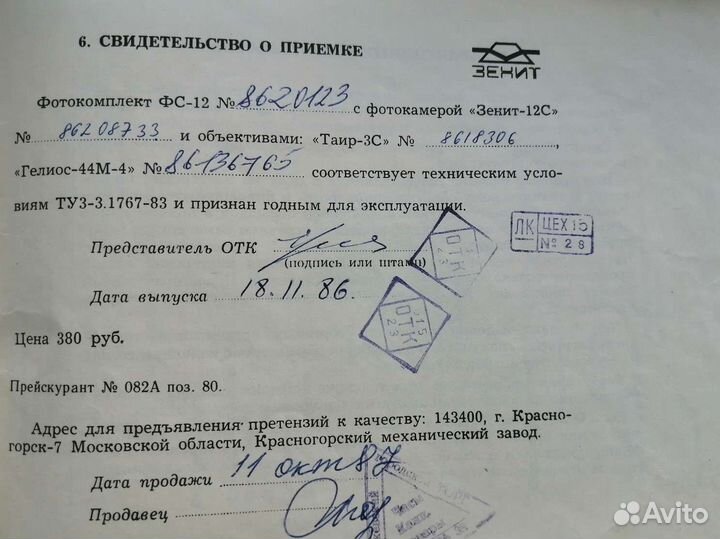 6. СВИДЕТЕЛЬСТВО О ПРИЕМКЕ
ЗЕНИТ
Фотокомплект ФС-12 № 8620123 с фотокамерой «Зенит-12С»
№ 86208733 и объективами: «Таир-3С» № 8618306,
«Гелиос-44М-4» № 86136765 соответствует техническим усло-
виям ТУ3-3.1767-83 и признан годным для эксплуатации.
ЛК ЦЕХ 15
№ 28
Представитель ОТК
(подпись или штамп)
ОТК
23
Дата выпуска 18.11.86.
215
ОТК
23
Цена 380 руб.
Прейскурант № 082А поз. 80.
Адрес для предъявления претензий к качеству: 143400, г. Красно-
горск-7 Московской области, Красногорский механический завод.
Дата продажи 11 окт 87
Продавец
Avito